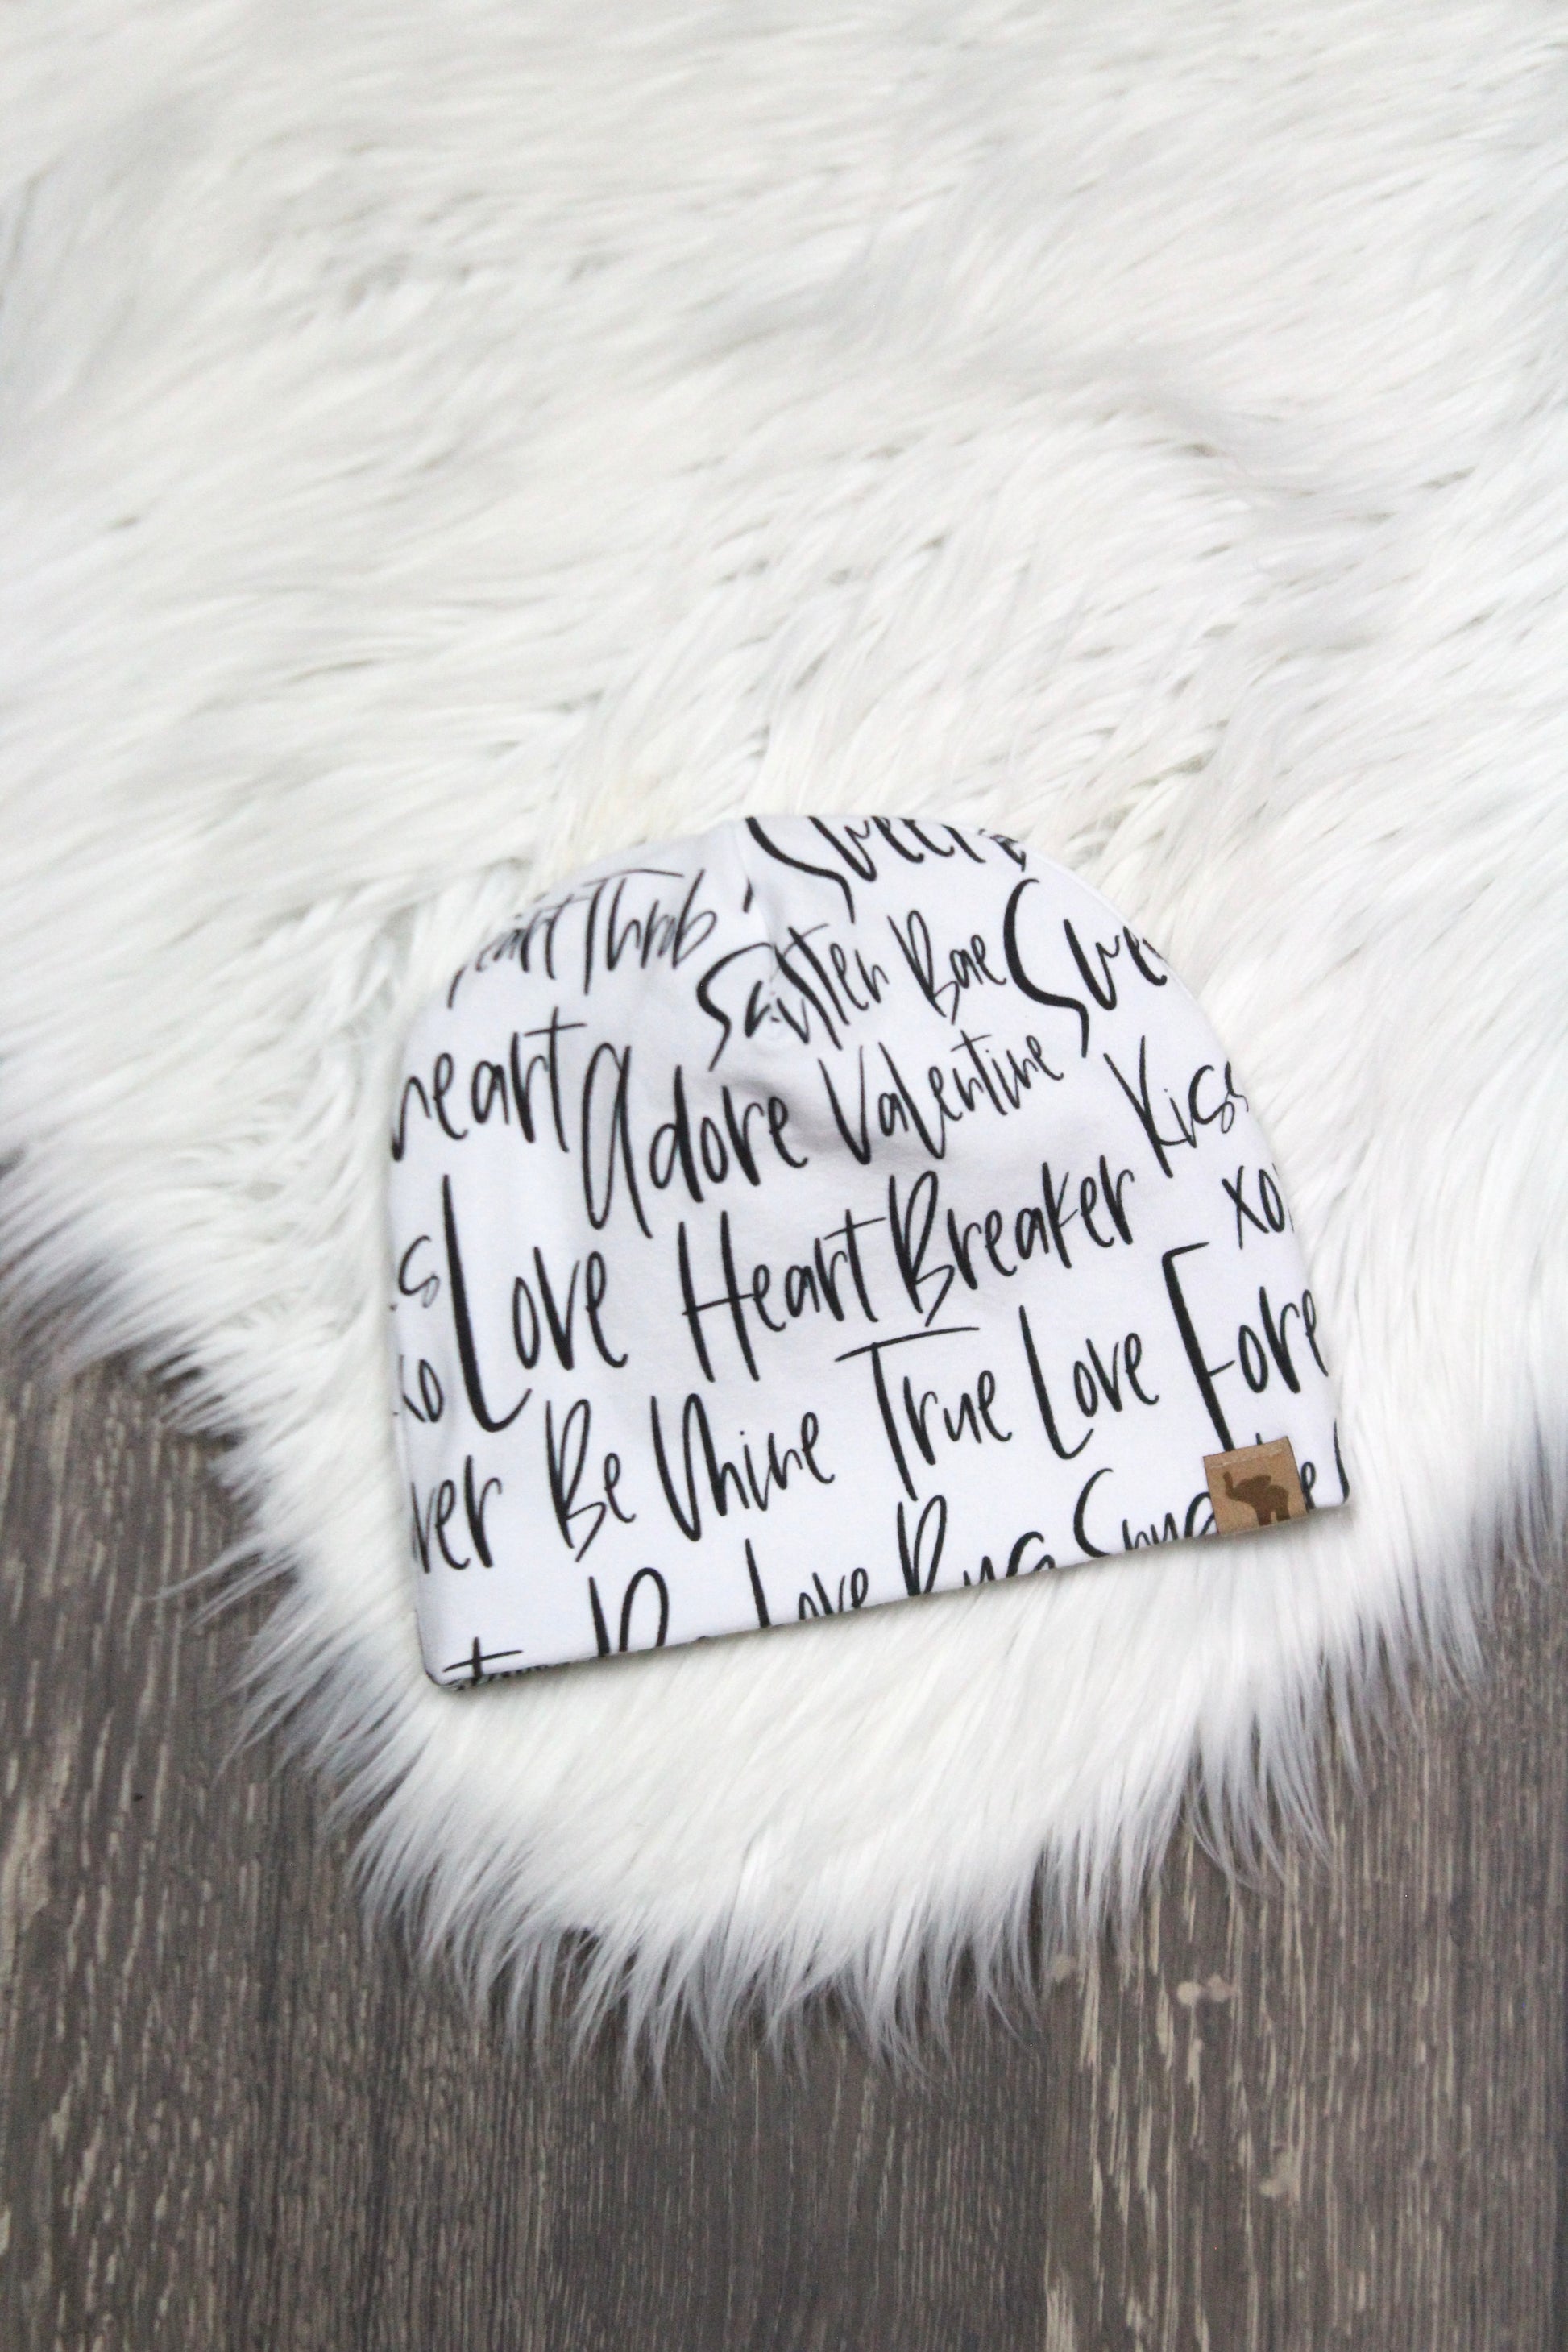 Sweet
Heart Throb
Bae Swe
heart Adore Valentine Kiss
Love Heart Breaker xo
xo Be Mine True Love Fore
ver
Love Bug Snug